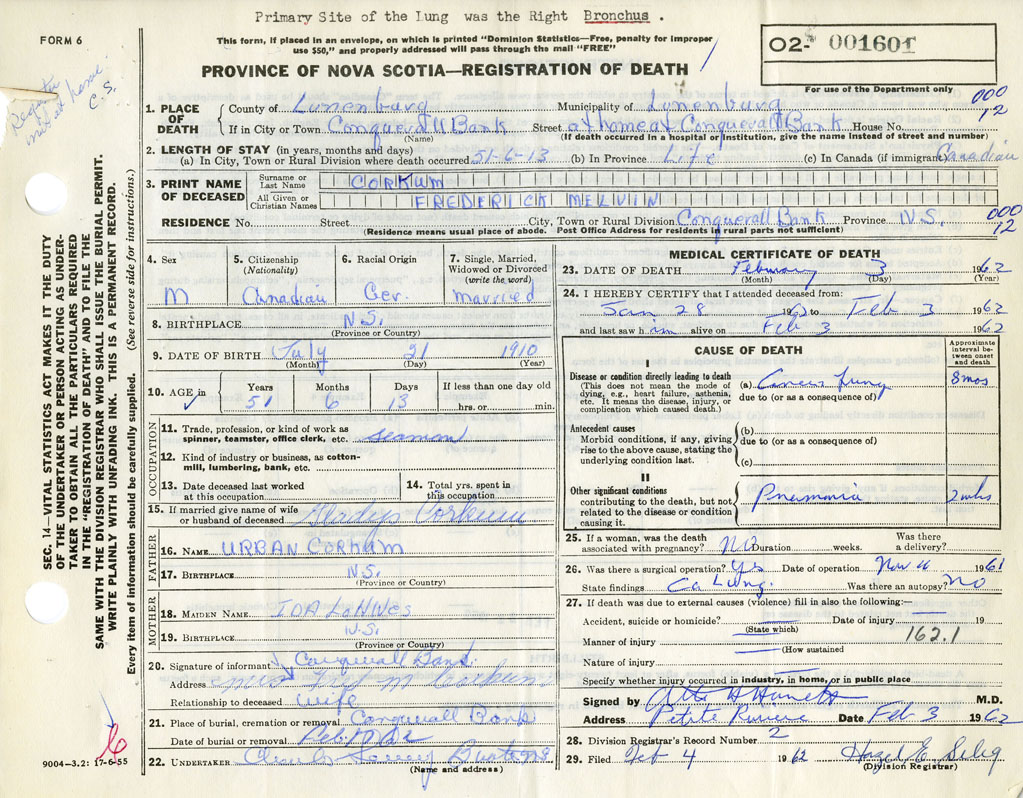 Primary Site of the Lung was the Right Bronchus .
FORM 6
This form, if placed in an envelope, on which is printed "Dominion Statistics—Free, penalty for improper
use $50," and properly addressed will pass through the mail "FREE"
02- 001601
PROVINCE OF NOVA SCOTIA—REGISTRATION OF DEATH
For use of the Department only
C.S.
000
12
1. PLACE OF DEATH
County of Lunenburg Municipality of Lunenburg
If in City or Town Conquerall Bank Street at home at Conquerall Bank House No.
(Name) (If death occurred in a hospital or institution, give the name instead of street and number)
2. LENGTH OF STAY (in years, months and days)
(a) In City, Town or Rural Division where death occurred 51-6-13 (b) In Province Life (c) In Canada (if immigrant) Canadian
3. PRINT NAME OF DECEASED
Surname or Last Name CORKUM
All Given or Christian Names FREDERICK MELVIN
RESIDENCE No. Street City, Town or Rural Division Conquerall Bank Province N.S.
000
12
(Residence means usual place of abode. Post Office Address for residents in rural parts not sufficient)
4. Sex
M
5. Citizenship
(Nationality)
Canadian
6. Racial Origin
Ger.
7. Single, Married,
Widowed or Divorced
(write the word)
Married
8. BIRTHPLACE N.S.
(Province or Country)
9. DATE OF BIRTH July 21 1910
(Month) (Day) (Year)
10. AGE in
Years Months Days If less than one day old
51 6 13 hrs. or min.
OCCUPATION
11. Trade, profession, or kind of work as
spinner, teamster, office clerk, etc. Seaman
12. Kind of industry or business, as cotton-
mill, lumbering, bank, etc.
13. Date deceased last worked
at this occupation
14. Total yrs. spent in
this occupation
15. If married give name of wife
or husband of deceased Gladys Corkum
FATHER
16. NAME URBAN CORKUM
17. BIRTHPLACE N.S.
(Province or Country)
MOTHER
18. MAIDEN NAME IDA
19. BIRTHPLACE N.S.
(Province or Country)
20. Signature of informant Conquerall Bank.
Address Mrs M Corkum
Relationship to deceased wife
21. Place of burial, cremation or removal Conquerall Bank
Date of burial or removal
22. UNDERTAKER
(Name and address)
MEDICAL CERTIFICATE OF DEATH
23. DATE OF DEATH February 3 1962
(Month) (Day) (Year)
24. I HEREBY CERTIFY that I attended deceased from:
Jan 28 1962 to Feb 3 1962
and last saw him alive on Feb 3 1962
CAUSE OF DEATH
Approximate
interval be-
tween onset
and death
I
Disease or condition directly leading to death
(This does not mean the mode of
dying, e.g., heart failure, asthenia,
etc. It means the disease, injury, or
complication which caused death.)
(a) Cancer Lung 8 mos
due to (or as a consequence of)
Antecedent causes
Morbid conditions, if any, giving
rise to the above cause, stating the
underlying condition last.
(b)
due to (or as a consequence of)
(c)
II
Other significant conditions
contributing to the death, but not
related to the disease or condition
causing it.
Pneumonia 2 wks
25. If a woman, was the death
associated with pregnancy? No Duration weeks. Was there
a delivery?
26. Was there a surgical operation? Yes Date of operation Nov 1961
State findings Ca Lung. Was there an autopsy? No
27. If death was due to external causes (violence) fill in also the following:—
Accident, suicide or homicide? Date of injury 19
(State which)
162.1
Manner of injury
(How sustained
Nature of injury
Specify whether injury occurred in industry, in home, or in public place
Signed by M.D.
Address Petite Riviere Date Feb 3 1962
28. Division Registrar's Record Number 2
29. Filed Feb 4 1962 Hazel E. Selig
(Division Registrar)
SEC. 14—VITAL STATISTICS ACT MAKES IT THE DUTY
OF THE UNDERTAKER OR PERSON ACTING AS UNDER-
TAKER TO OBTAIN ALL THE PARTICULARS REQUIRED
IN THE "REGISTRATION OF DEATH" AND TO FILE THE
SAME WITH THE DIVISION REGISTRAR WHO SHALL ISSUE THE BURIAL PERMIT.
WRITE PLAINLY WITH UNFADING INK. THIS IS A PERMANENT RECORD.
Every item of information should be carefully supplied. (See reverse side for instructions.)
9004-3.2: 17-6-55